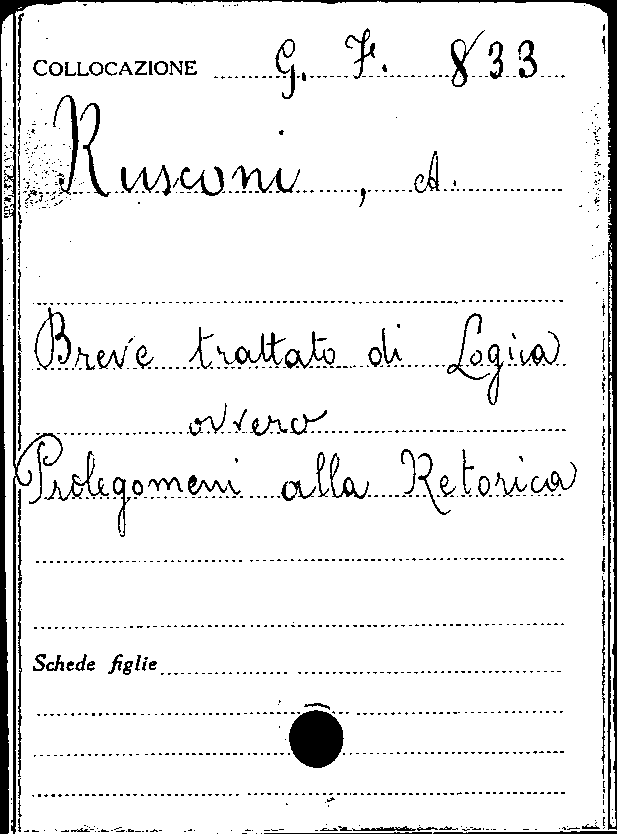 COLLOCAZIONE G. F. 833
Rusconi, A.
Breve trattato di Logica
ovvero
Prolegomeni alla Retorica
Schede figlie